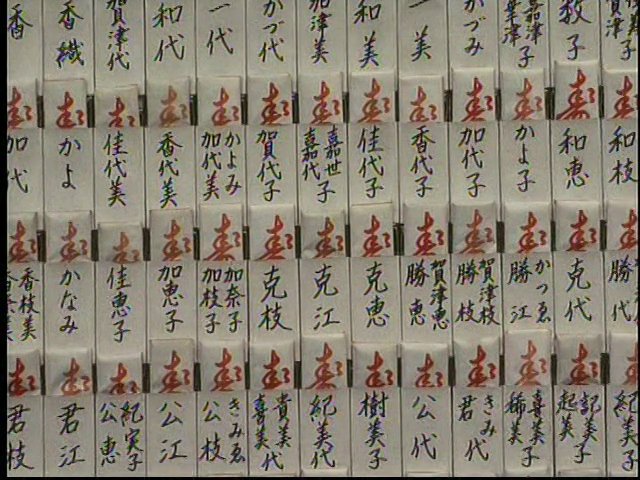 香
香織
賀津代
和代
一代
かづ代
加津美
和美
一美
かづみ
嘉津子
葉津
教子
寿
寿
寿
寿
寿
寿
寿
寿
寿
寿
寿
寿
寿
加代
かよ
佳代美
香代美
かよみ
加代美
賀代子
嘉世子
嘉代
佳代子
香代子
加代子
かよ子
和恵
和枝
寿
寿
寿
寿
寿
寿
寿
寿
寿
寿
寿
寿
寿
香枝美
かなみ
佳恵子
加恵子
加奈子
加枝子
克枝
克江
克恵
賀津恵
勝恵
賀津枝
勝枝
かつゑ
勝江
克代
勝代
寿
寿
寿
寿
寿
寿
寿
寿
寿
寿
寿
寿
寿
君枝
君江
紀実子
公恵
公江
きみゑ
公枝
貴美代
喜美
紀美代
樹美子
公代
きみ代
君代
喜美子
稀美
記美子
起美
紀美